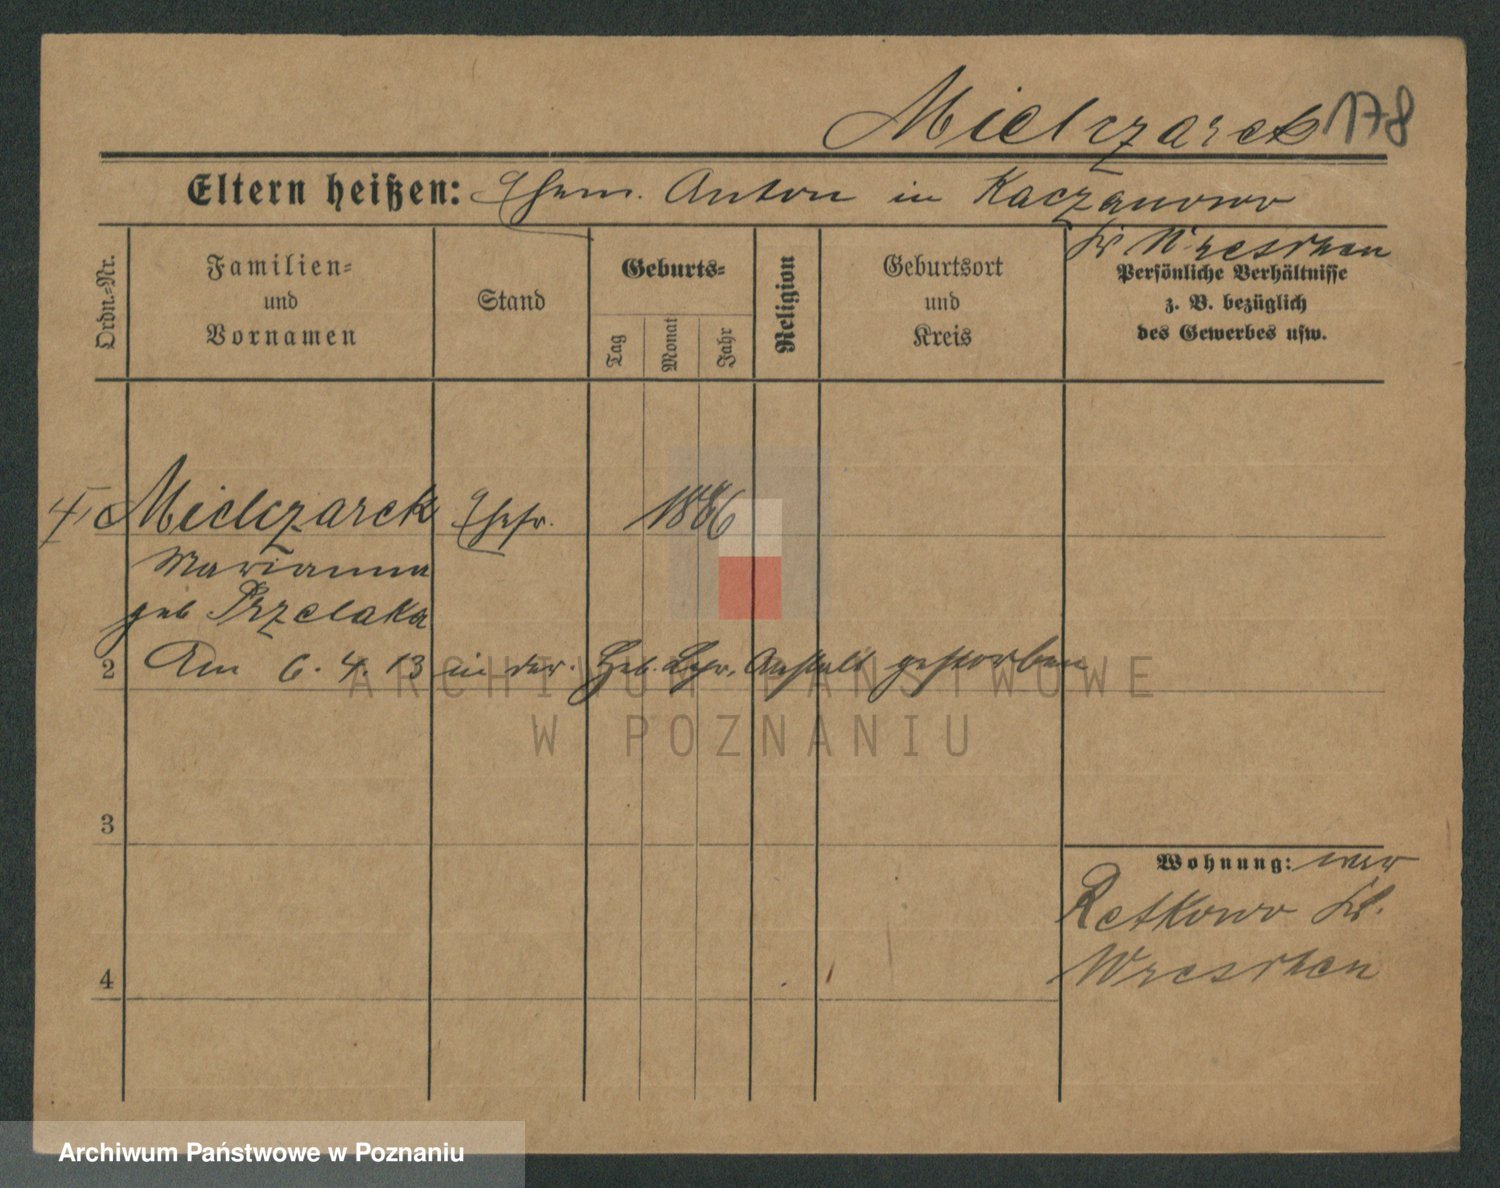 Mielczarek 178
Eltern heißen: Ehem. Anton in Kaczanowo
Kr Wreschen
Ordn.-Nr.
Familien-
und
Vornamen
Stand
Geburts-
Tag
Monat
Jahr
Religion
Geburtsort
und
Kreis
Persönliche Verhältnisse
z. B. bezüglich
des Gewerbes usw.
Mielczarek Ehefr. 1886
Marianna
geb Przelaka
2 Am 6. 4. 13 in der. Heb. Lehr. Anstalt gestorben
ARCHIWUM PAŃSTWOWE
W POZNANIU
3
Wohnung: war
Retkowo Kr.
Wreschen
4
Archiwum Państwowe w Poznaniu